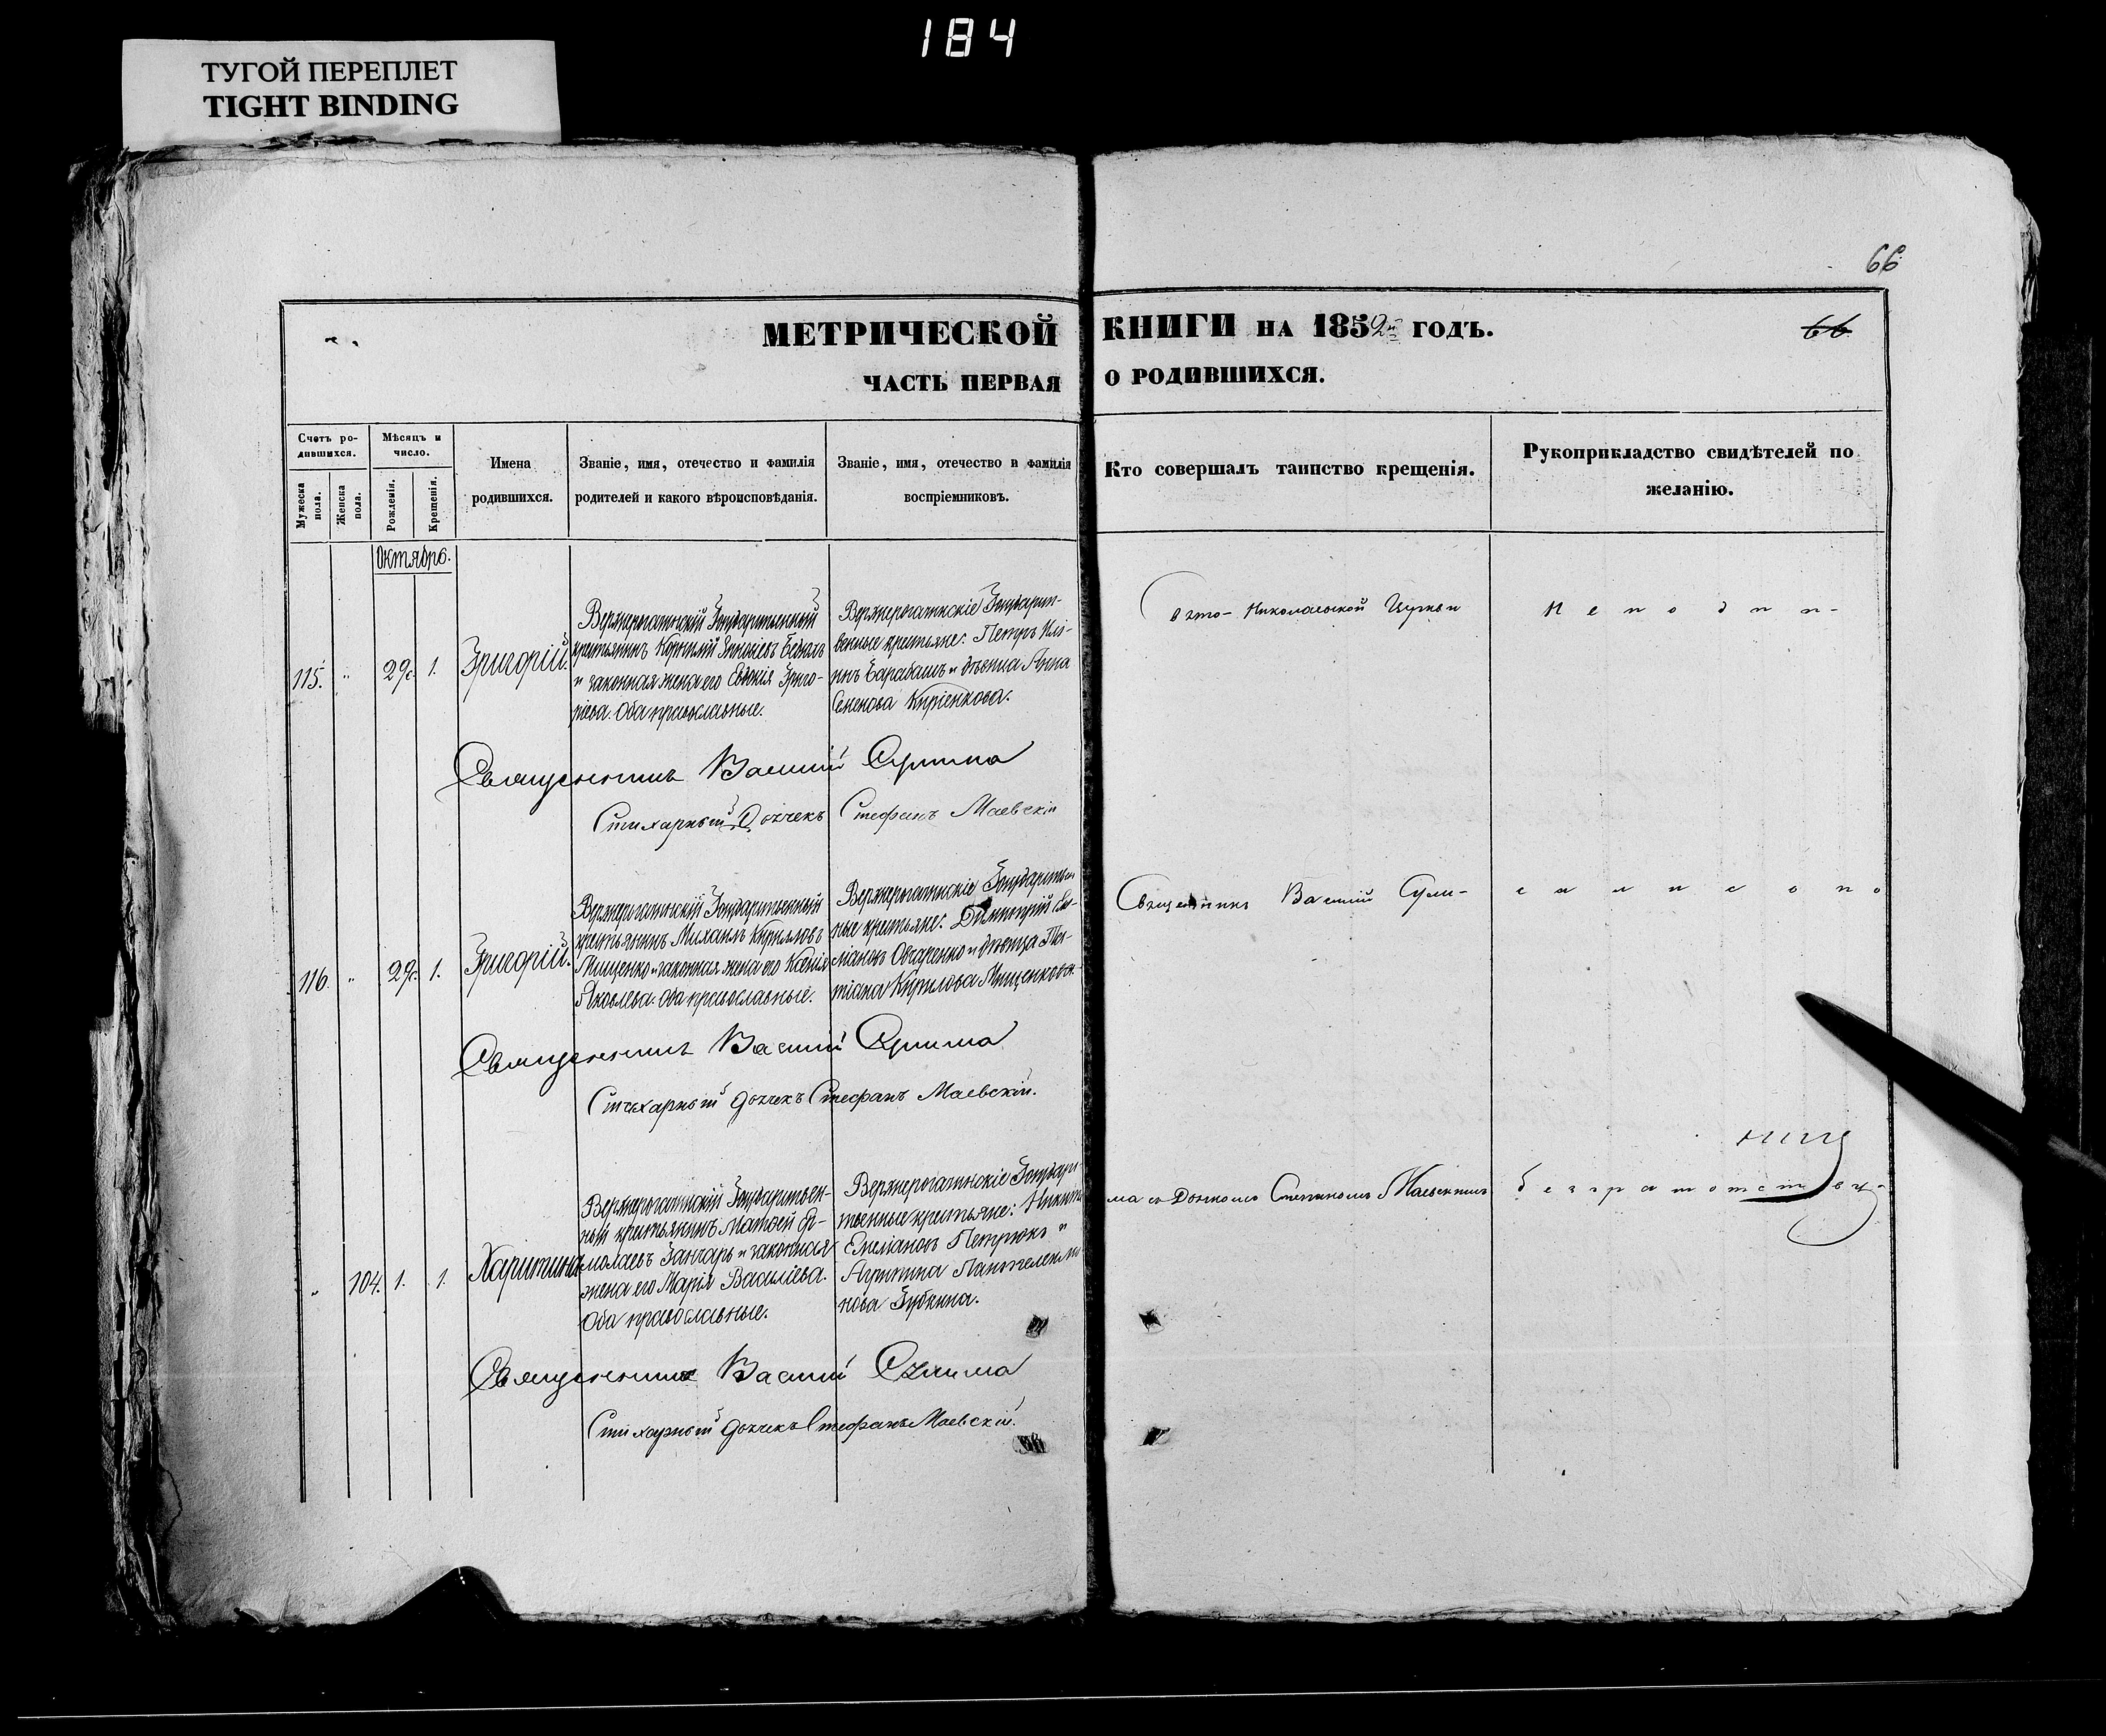 184
ТУГОЙ ПЕРЕПЛЕТ
TIGHT BINDING
66
МЕТРИЧЕСКОЙ КНИГИ НА 1852й ГОДЪ.
66
ЧАСТЬ ПЕРВАЯ О РОДИВШИХСЯ.
Счетъ ро-
дившихся.
Мужеска
пола.
Женска
пола.
Мѣсяцъ и
число.
Рожденія.
Крещенія.
Имена
родившихся.
Званіе, имя, отечество и фамилія
родителей и какого вѣроисповѣданія.
Званіе, имя, отечество и фамилія
воспріемниковъ.
Кто совершалъ таинство крещенія.
Рукоприкладство свидѣтелей по
желанію.
Октябрь.
115.
"
29.
1.
Григорій.
Верхнерогачинскій Государственный
крестьянинъ Корнилій
и законная жена его Евдокія Григо-
ріева. Оба православные.
Верхнерогачинскіе Государст-
венные крестьяне: Петръ Илі-
инъ Барабашъ и дѣвица Анна
Семенова Киріенкова.
Свято-Николаевской Церкви
Н е п о д п и-
Священникъ Василій Сулима
Стихарный Дьячекъ Стефанъ Маевскій
116.
"
29.
1.
Григорій.
Верхнерогачинскій Государственный
крестьянинъ Михаилъ Кирилловъ
Мищенко и законная жена его Ксенія
Яковлева. Оба православные.
Верхнерогачинскіе Государствен
ные крестьяне: Димитрій Ем-
ліановъ Овчаренко и дѣвица Та-
тіана Кирилова Мищенкова.
Священникъ Василій Сули-
с а л и с ь п о
Священникъ Василій Сулима
Стихарный дьячекъ Стефанъ Маевскій.
"
104.
1.
1.
Харитина
Верхнерогачинскій Государствен-
ный крестьянинъ Матфей Ер-
молаевъ и законная
жена его Марія Василіева.
Оба православные.
Верхнерогачинскіе Государс-
твенные крестьяне: Никита
Емеліановъ Петрюкъ и
Агрипина Пантелеимо
нова Зубкина.
ма съ Дьячкомъ Стефаномъ Маевскимъ
б е з г р а м о т с т в у-
Священникъ Василій Сулима
Стихарный дьячекъ Стефанъ Маевскій.